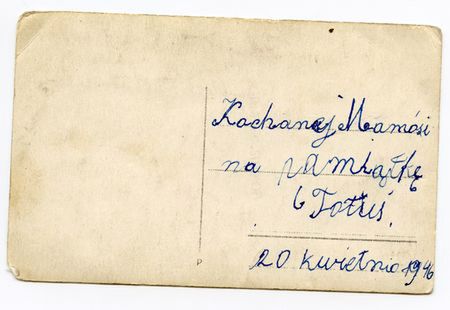 Kochanej Mamósi
na pamiątkę
Totuś
20 kwietnia 1946
P